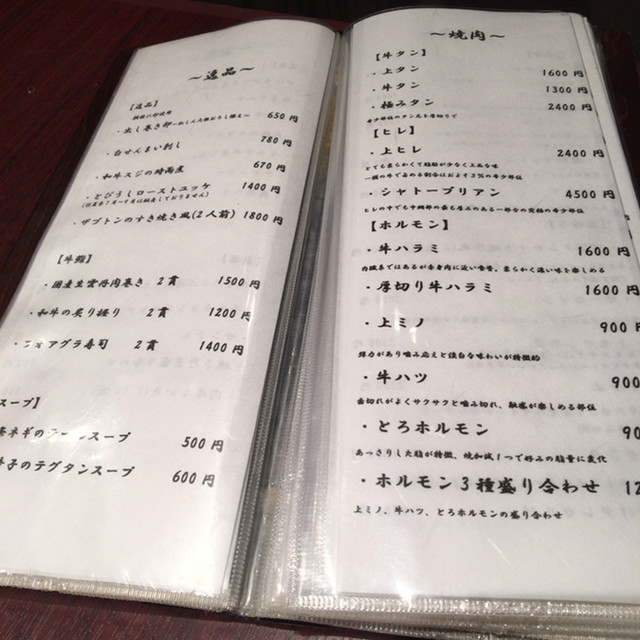 ～逸品～
【逸品】
・出し巻き卵 650円
・白せんまい刺し 780円
・和牛スジの時雨煮 670円
・とびうしローストユッケ 1400円
・ザブトンのすき焼き風(2人前) 1800円
【牛鮨】
・国産生雲丹肉巻き 2貫 1500円
・和牛の炙り握り 2貫 1200円
・フォアグラ寿司 2貫 1400円
スープ】
ネギのテールスープ 500円
子のテグタンスープ 600円
～焼肉～
【牛タン】
・上タン 1600円
・牛タン 1300円
・極みタン 2400円
希少部位のタン元を厚切りで
【ヒレ】
・上ヒレ 2400円
とても柔らかくて脂肪が少なく上品な味
一頭の牛で占める割合はおよそ3%の希少部位
・シャトーブリアン 4500円
ヒレのすでも中間部の最も厚みのある一部分の究極の希少部位
【ホルモン】
・牛ハラミ 1600円
内臓まではあるが赤身肉に近い食香。柔らかく濃い味を楽しめる
・厚切り牛ハラミ 1600円
・上ミノ 900円
弾力があり噛み応えと淡白な味わいが特徴的
・牛ハツ 900
歯切れがよくサクサクと噛み切れ、触感が楽しめる部位
・とろホルモン 90
あっさりした脂が特徴、焼加減1つで好みの脂量に変化
・ホルモン3種盛り合わせ 12
上ミノ、牛ハツ、とろホルモンの盛り合わせ